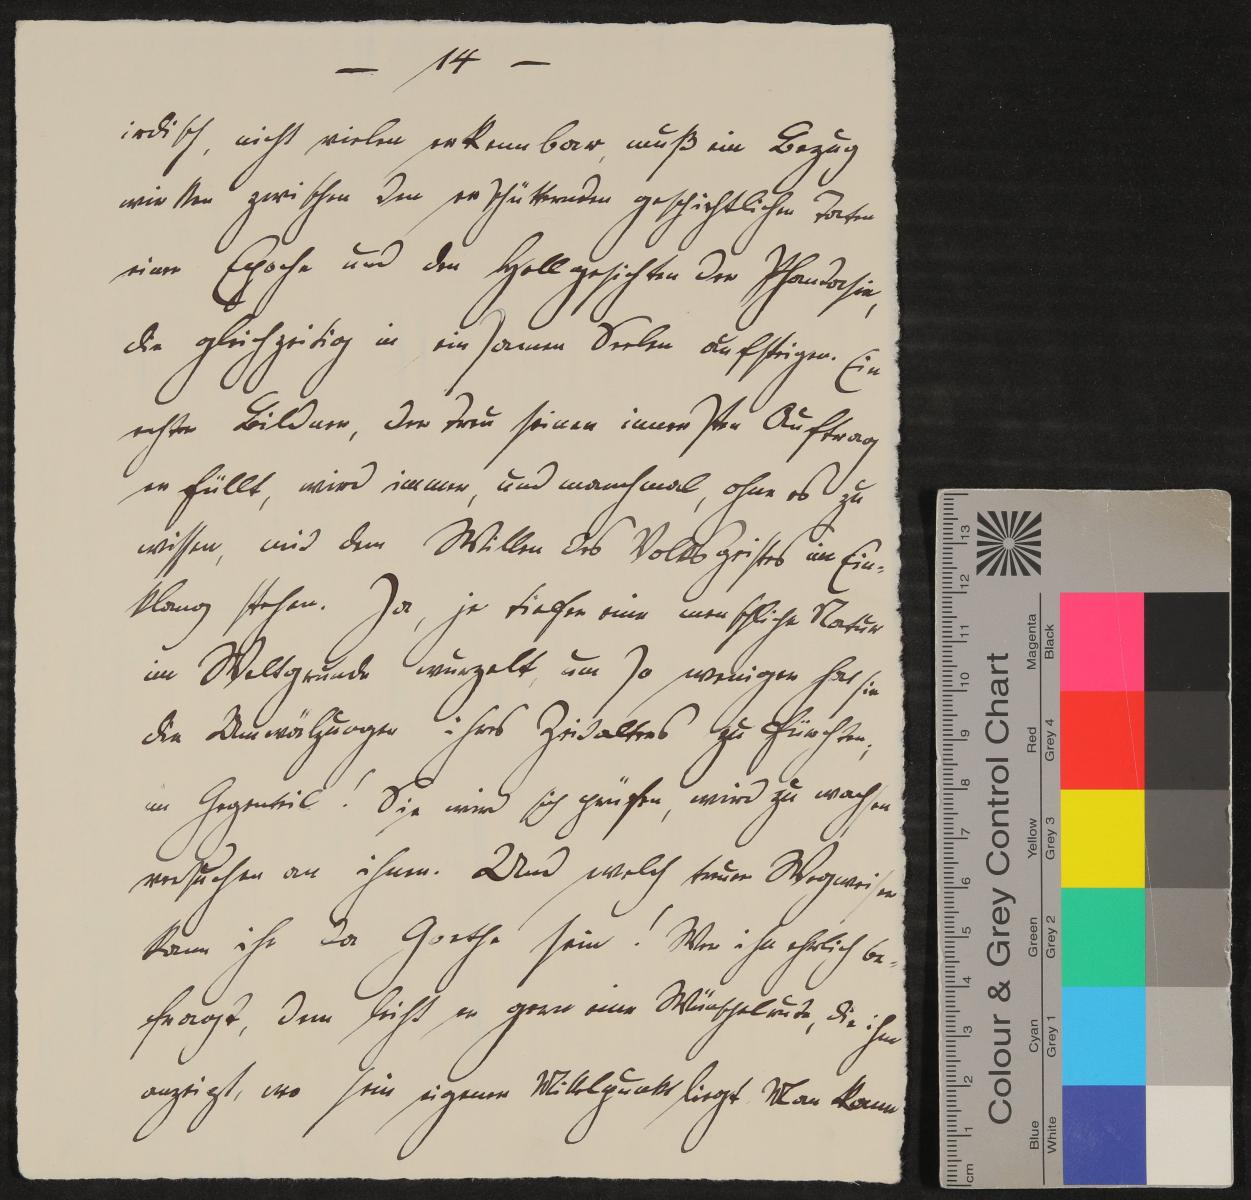 — 14 —
irdisch, nicht vielen erkennbar, muß ein Bezug
wirken zwischen den erschütternden geschichtlichen Taten
einer Epoche und den Hellgesichten der Phantasie,
die gleichzeitig in einsamen Seelen aufsteigen. Ein
echter Bildner, der treu seinen innersten Auftrag
erfüllt, wird immer, und manchmal, ohne es zu
wissen, mit dem Willen des Volksgeistes im Ein-
klang stehen. Ja, je tiefer eine menschliche Natur
im Weltgrunde wurzelt, um so weniger hat sie
die Umwälzungen ihres Zeitalters zu fürchten,
im Gegenteil! Sie wird sich prüfen, wird zu wachsen
versuchen an ihnen. Und welch treuer Wegweiser
kann ihr da Goethe sein! Wer ihn ehrlich be-
fragt, dem leiht er gern eine Wünschelrute, die ihm
anzeigt, wo sein eigener Mittelpunkt liegt. Man kann
Colour & Grey Control Chart
Blue Cyan Green Yellow Red Magenta
White Grey 1 Grey 2 Grey 3 Grey 4 Black
cm 1 2 3 4 5 6 7 8 9 10 11 12 13